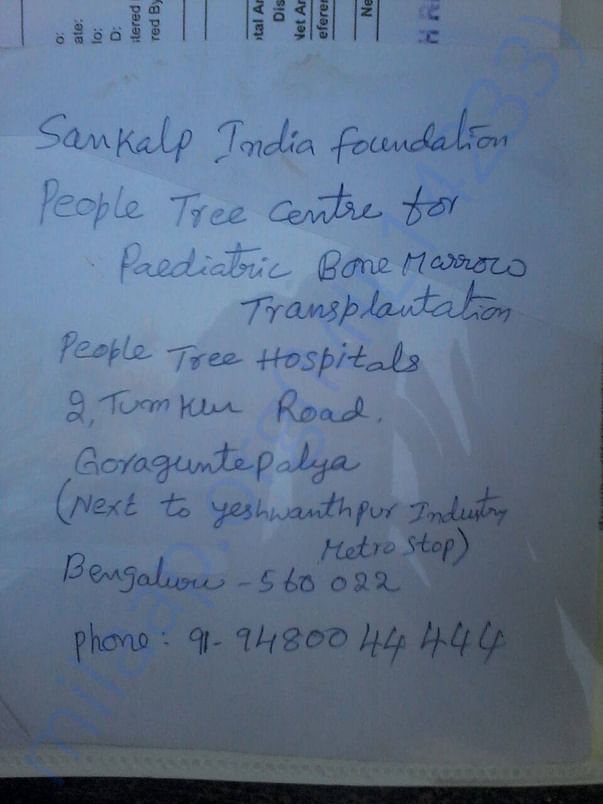 o:
ate:
lo:
D:
stered
red By
Dis
Net Ar
eferen
Ne
H R
Sankalp India foundation
People Tree Centre for
Paediatric Bone Marrow
Transplantation
People Tree Hospitals
2, Tumkur Road.
Goraguntepalya
(Next to yeshwanthpur Industry
Metro Stop)
Bengaluru - 560 022
phone: 91- 94800 44 444